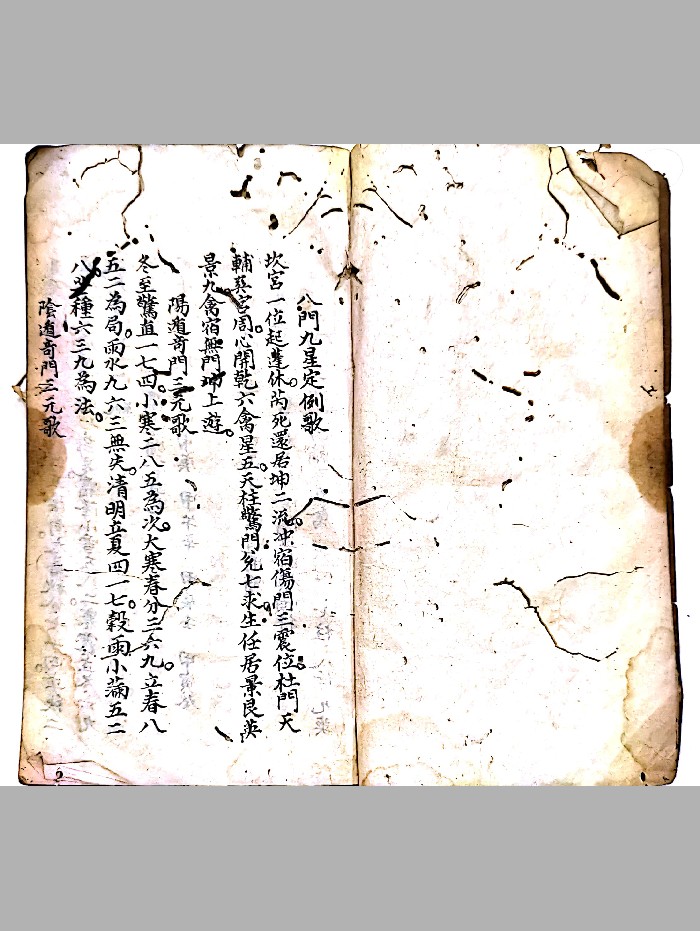 八門九星定例歌
坎宮一位起蓬休芮死還居坤二流冲宿傷門三震位杜門天
輔巽宮周心開乾六禽星五天柱驚門兌七求生任居景艮英
景九禽宿無門坤上遊
陽遁奇門三元歌
冬至驚直一七四小寒二八五為次大寒春分三六九立春八
五二為局雨水九六三無失清明立夏四一七穀雨小滿五二
八芒種六三九為法
陰遁奇門三元歌